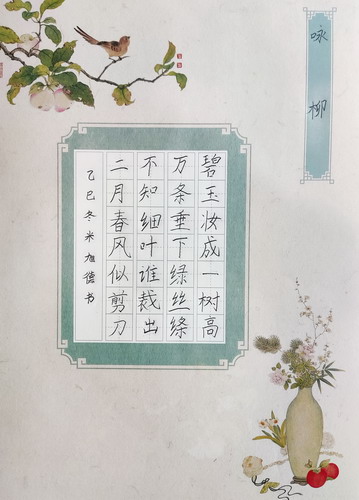 咏柳
碧玉妆成一树高
万条垂下绿丝绦
不知细叶谁裁出
二月春风似剪刀
乙巳冬米旭德书